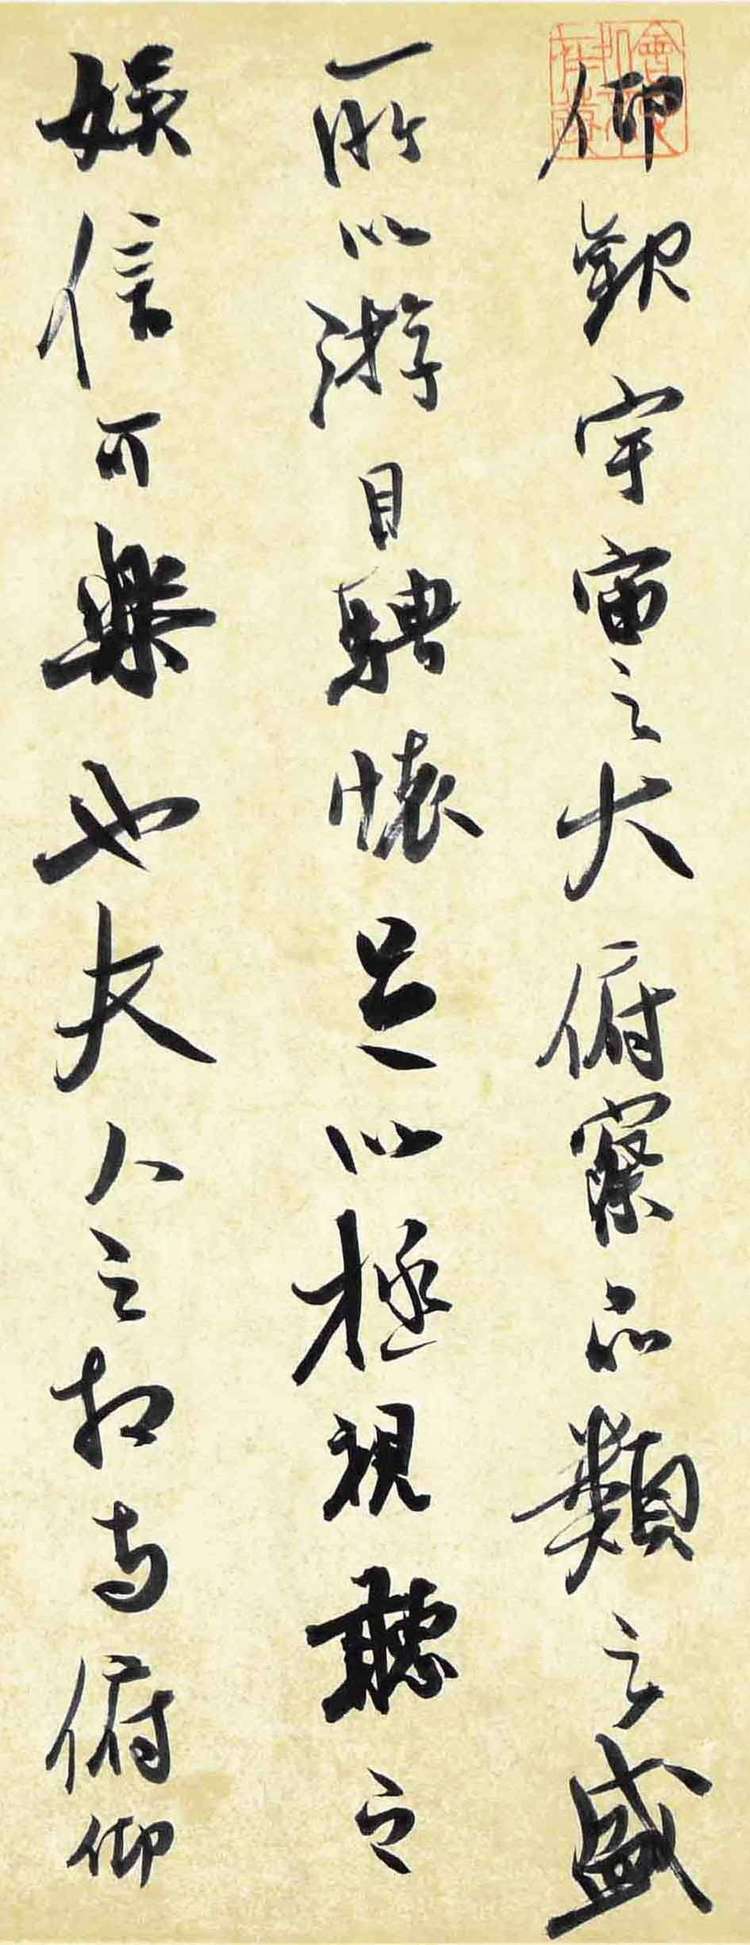 仰觀宇宙之大俯察品類之盛
所以游目騁懷足以極視聽之
娛信可樂也夫人之相與俯仰